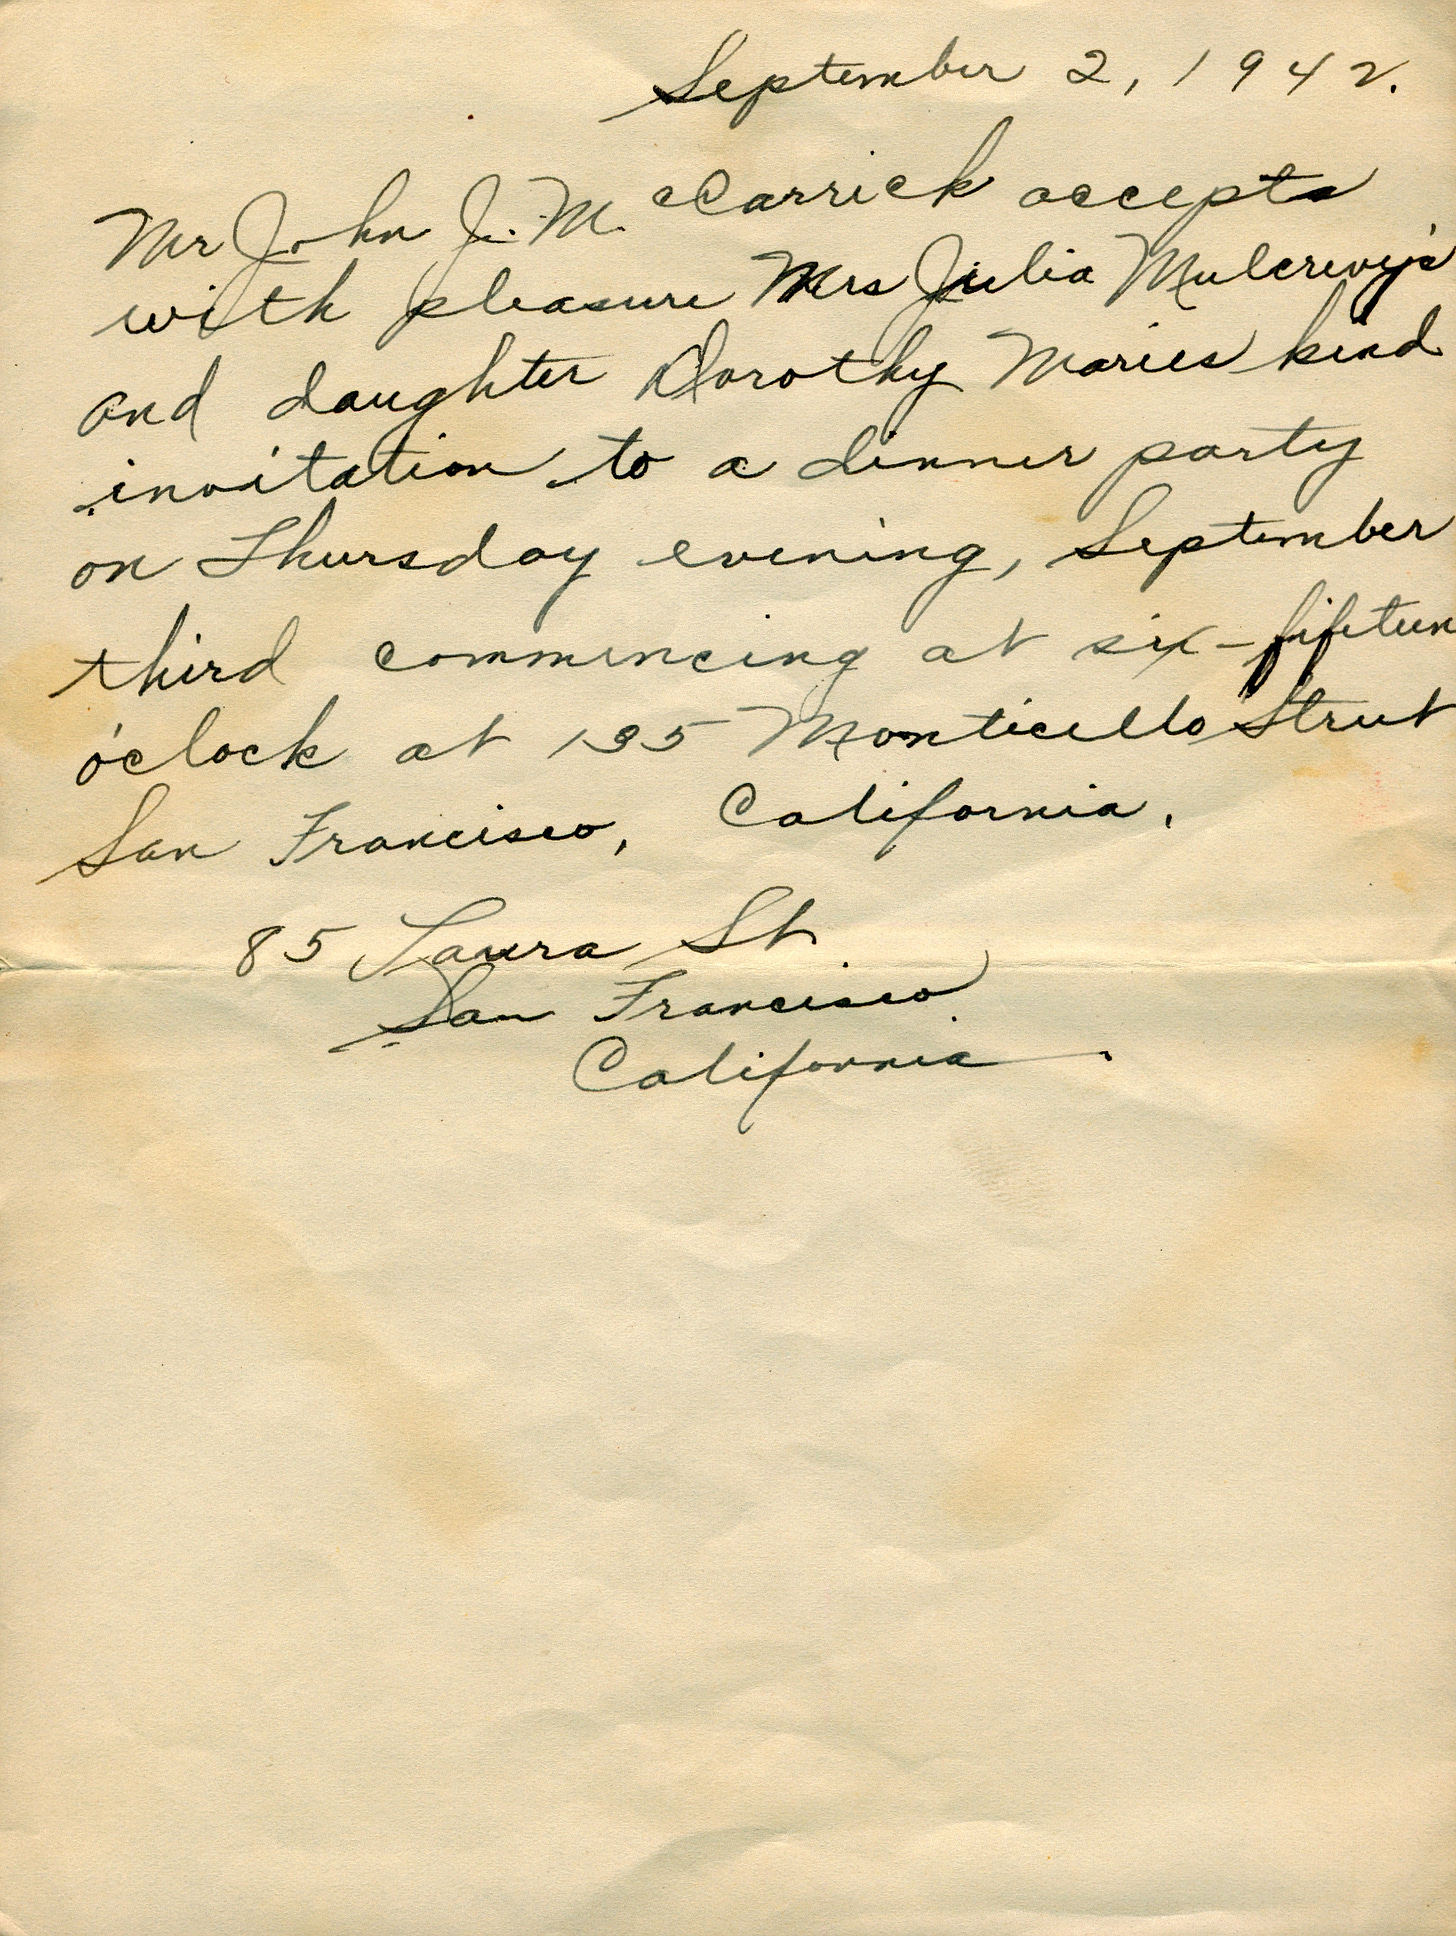 September 2, 1942.
Mr John J. McCarrick accepts
with pleasure Mrs Julia Mulcrevy's
and daughter Dorothy Maries kind
invitation to a dinner party
on Thursday evening, September
third commencing at six-fifteen
o'clock at 135 Monticello Street
San Francisco, California.
85 Laura St
San Francisco
California.